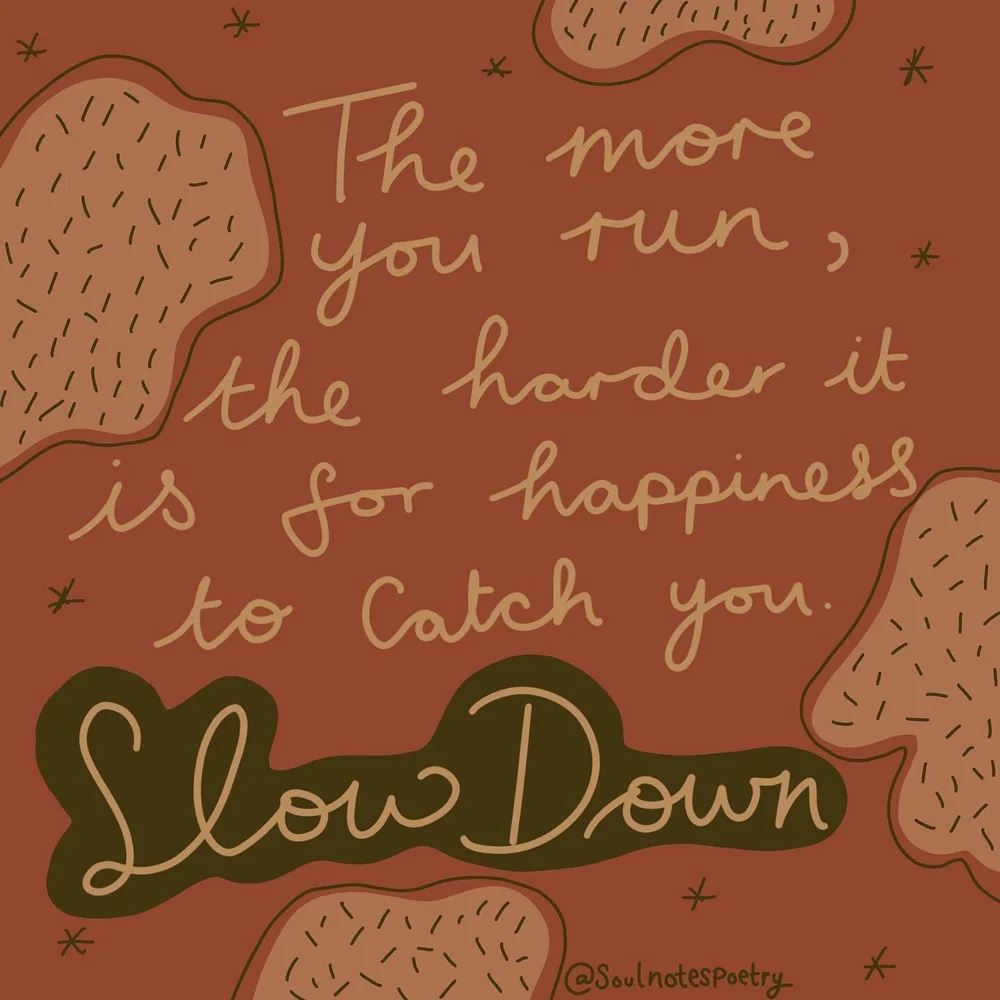 The more
you run,
the harder it
is for happiness
to Catch you.
Slow Down
@Soulnotespoetry